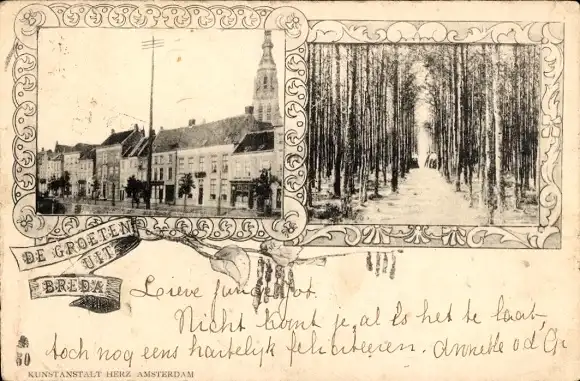 DE GROETEN
UIT
BREDA
Lieve
Nicht komt je, al is het te laat,
toch nog eens hartelijk feliciteeren. Annette
KUNSTANSTALT HERZ AMSTERDAM